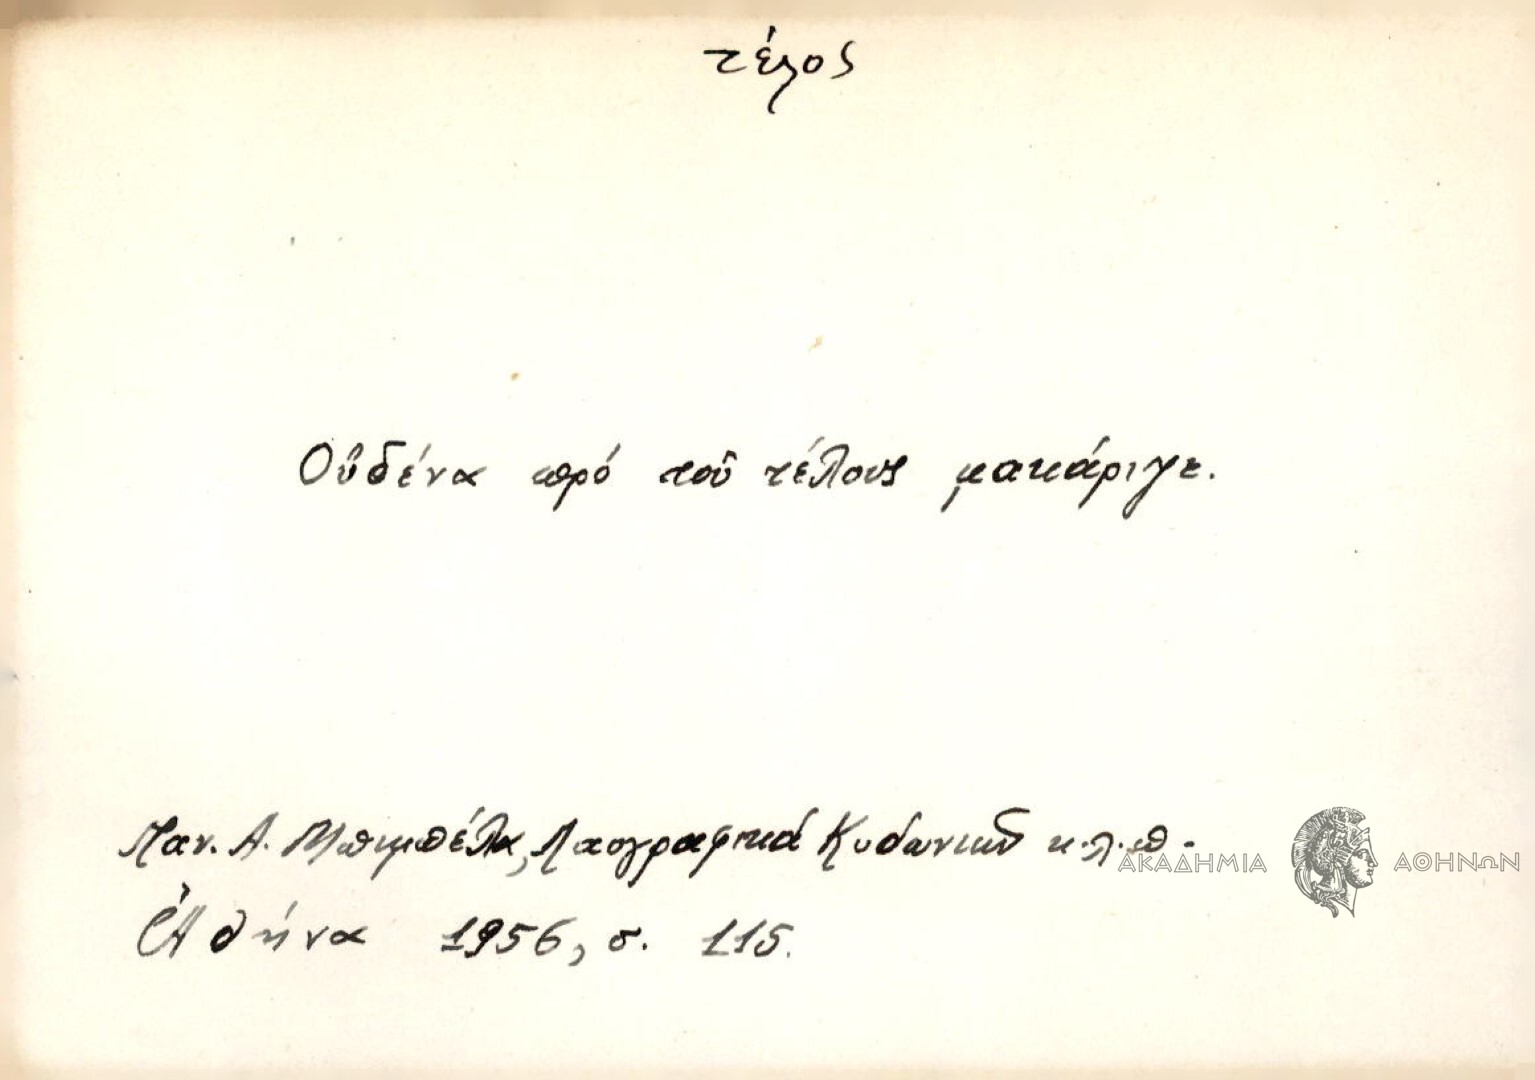 τέλος
Οὐδένα πρό τοῦ τέλους μακάριζε.
Παν. Α. Μπιμπέλα, Λαογραφικά Κυδωνιῶν κ.λ.π.
ΑΚΑΔΗΜΙΑ ΑΘΗΝΩΝ
Ἀθήνα 1956, σ. 115.